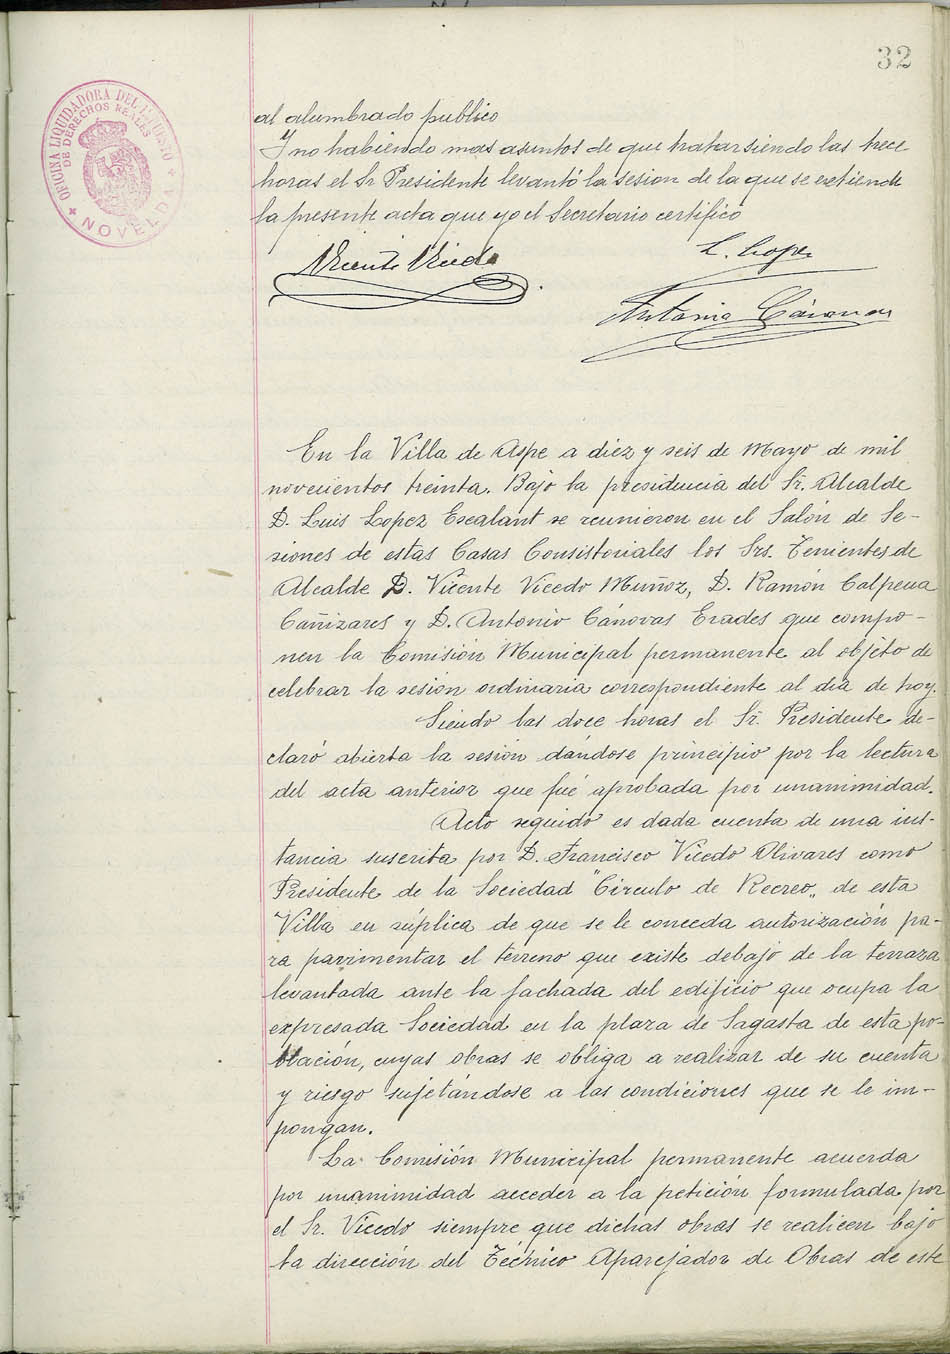 32
OFICINA LIQUIDADORA DEL IMPUESTO
DE DERECHOS REALES
NOVELDA
al alumbrado publico
Y no habiendo mas asuntos de que tratar siendo las trece
horas el Sr Presidente levantó la sesion de la que se extiende
la presente acta que yo el Secretario certifico
Vicente Vicedo
L. Lopez
Antonio Cánovas
En la Villa de Aspe a diez y seis de Mayo de mil
novecientos treinta. Bajo la presidencia del Sr. Alcalde
D. Luis Lopez Escalant se reunieron en el Salón de Se-
siones de estas Casas Consistoriales los Srs. Tenientes de
Alcalde D. Vicente Vicedo Muñoz, D. Ramón Calpena
Cañizares y D. Antonio Cánovas Erades que compo-
nen la Comisión Municipal permanente al objeto de
celebrar la sesión ordinaria correspondiente al día de hoy.
Siendo las doce horas el Sr. Presidente de-
claró abierta la sesión dándose principio por la lectura
del acta anterior que fué aprobada por unanimidad.
Acto seguido es dada cuenta de una ins-
tancia suscrita por D. Francisco Vicedo Olivares como
Presidente de la Sociedad "Circulo de Recreo" de esta
Villa en súplica de que se le conceda autorización pa-
ra pavimentar el terreno que existe debajo de la terraza
levantada ante la fachada del edificio que ocupa la
expresada Sociedad en la plaza de Sagasta de esta po-
blación, cuyas obras se obliga a realizar de su cuenta
y riesgo sujetándose a las condiciones que se le im-
pongan.
La Comisión Municipal permanente acuerda
por unanimidad acceder a la petición formulada por
el Sr. Vicedo siempre que dichas obras se realicen bajo
la dirección del Técnico Aparejador de Obras de este